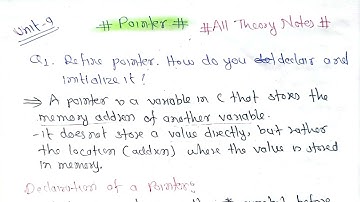 Unit-9
# Pointer # # All Theory Notes #
Q1. Define pointer. How do you declar and
initialize it?
⇒ A pointer is a variable in C that stores the
memory address of another variable.
- it does not store a value directly, but rather
the location (address) where the value is stored
in memory.
Declaration of a Pointer:
symbol before